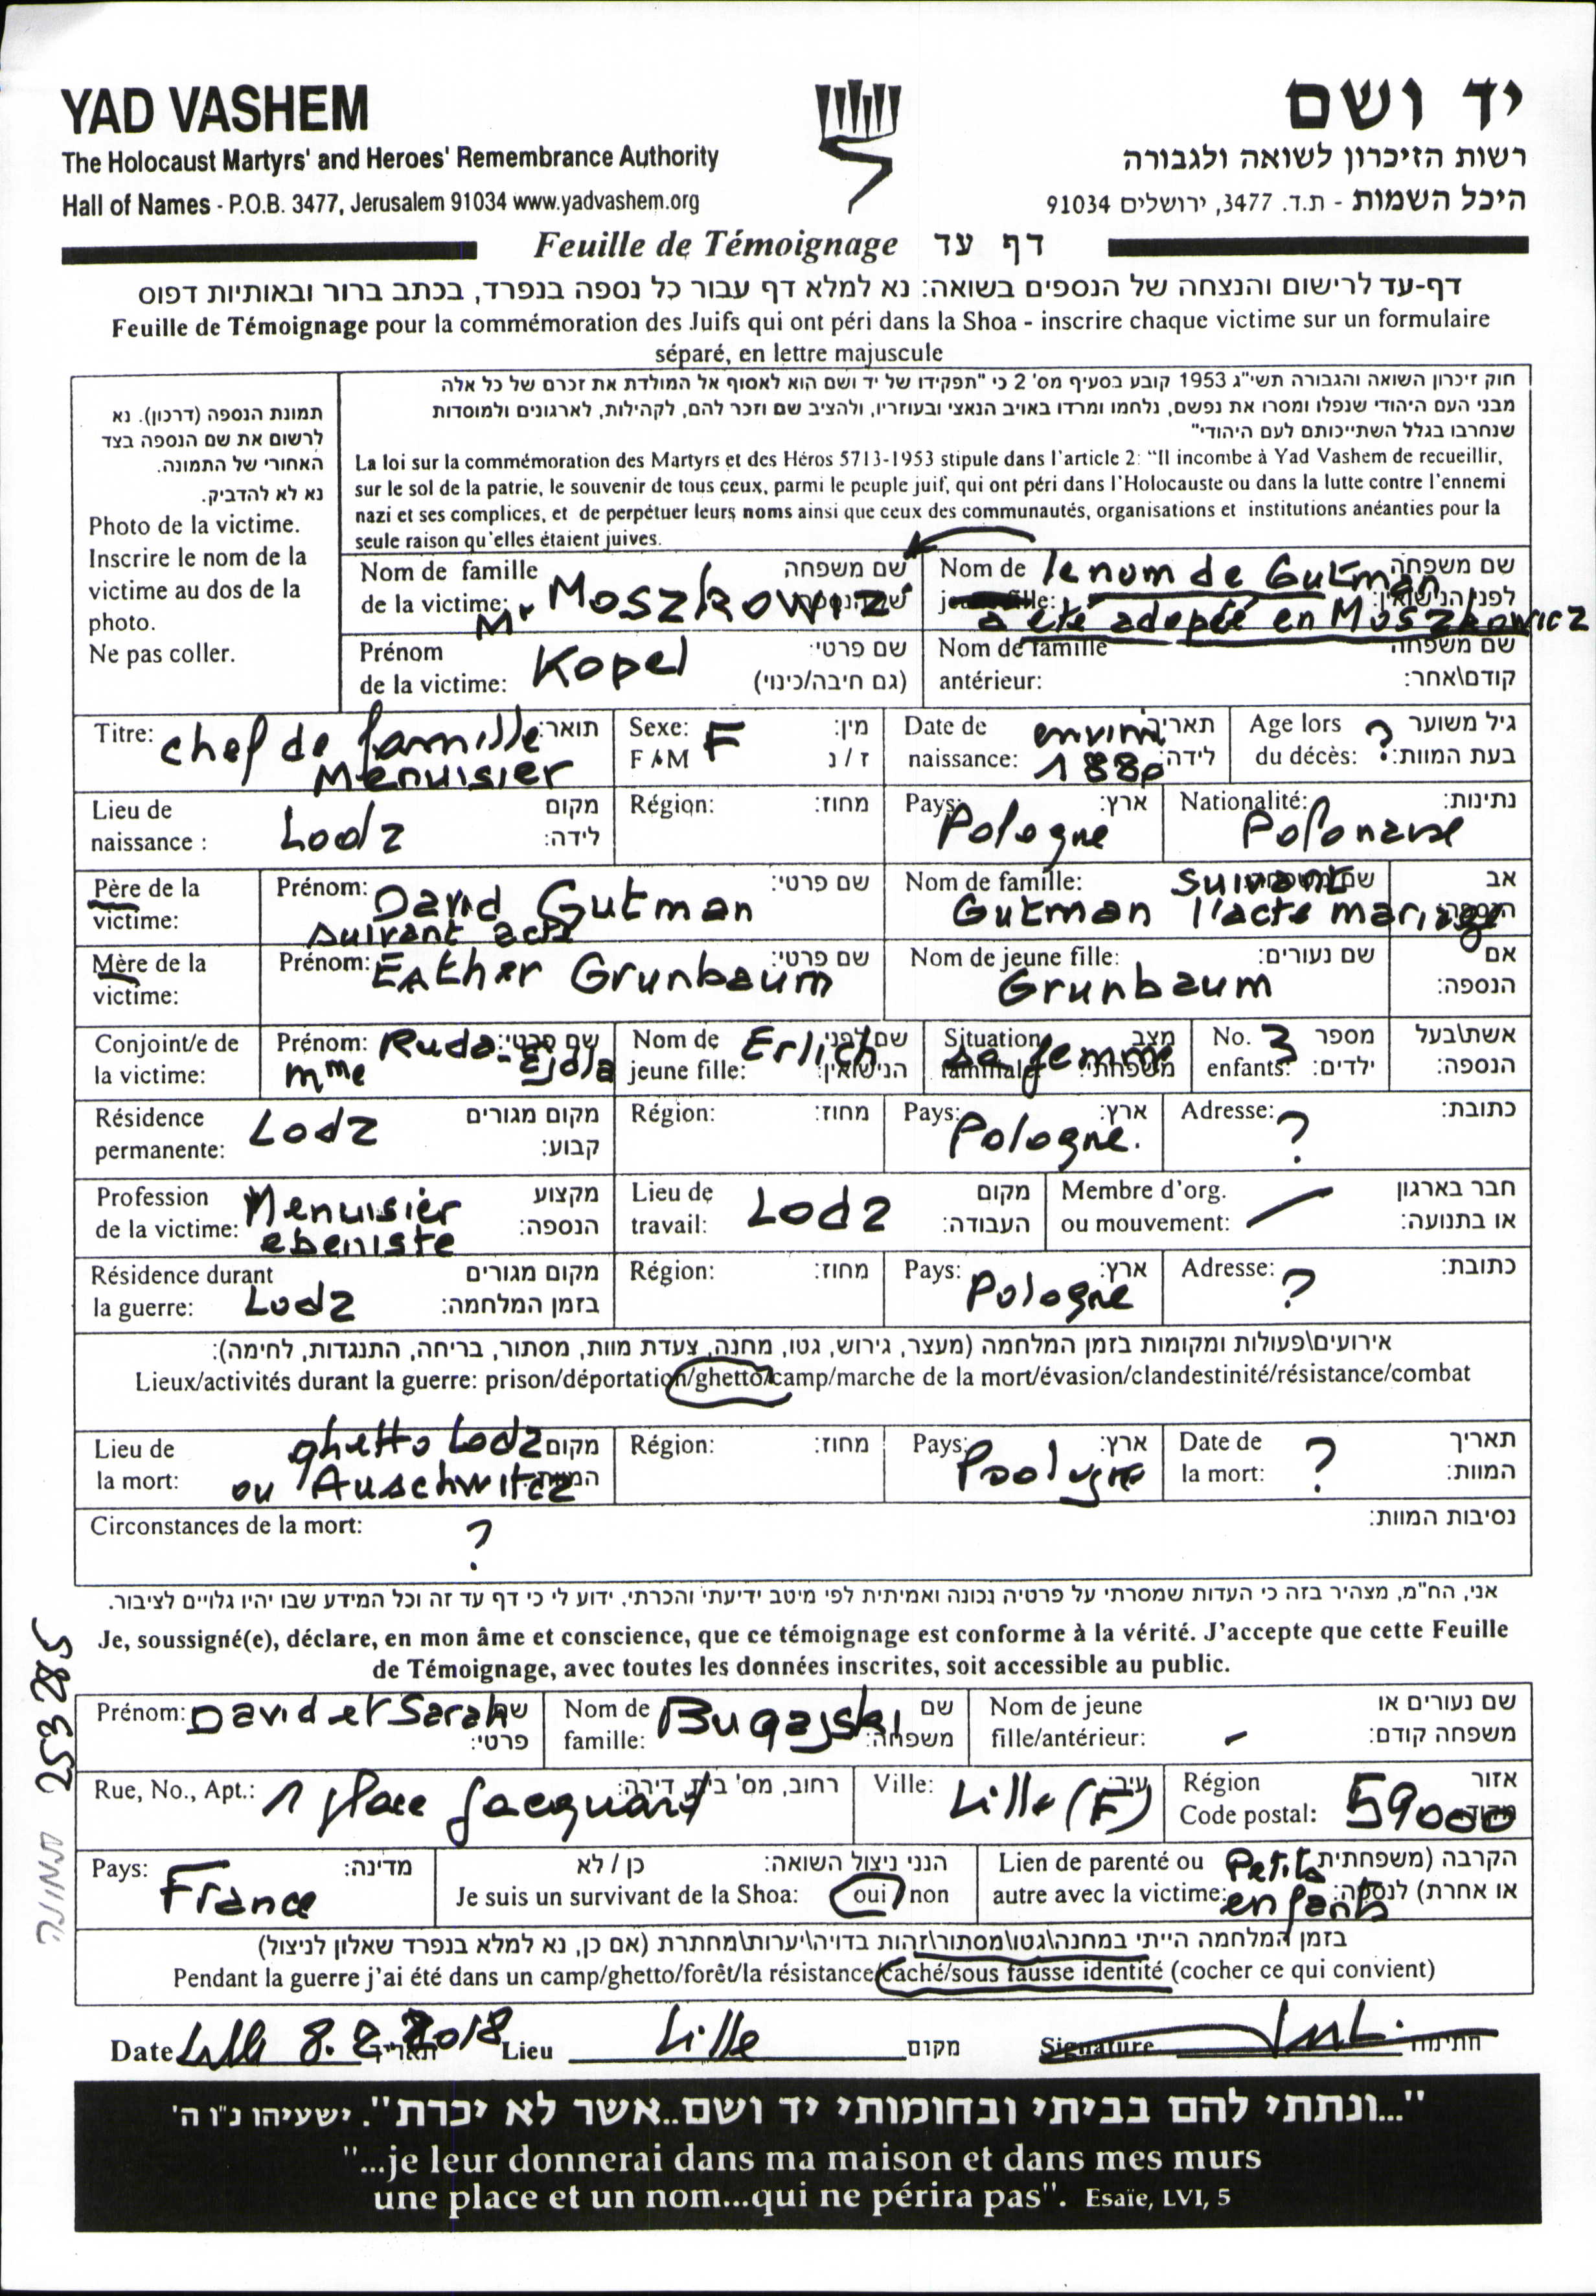 YAD VASHEM
The Holocaust Martyrs' and Heroes' Remembrance Authority
Hall of Names - P.O.B. 3477, Jerusalem 91034 www.yadvashem.org
יד ושם
רשות הזיכרון לשואה ולגבורה
היכל השמות - ת.ד. 3477, ירושלים 91034
Feuille de Témoignage דף עד
דף-עד לרישום והנצחה של הנספים בשואה: נא למלא דף עבור כל נספה בנפרד, בכתב ברור ובאותיות דפוס
Feuille de Témoignage pour la commémoration des Juifs qui ont péri dans la Shoa - inscrire chaque victime sur un formulaire
séparé, en lettre majuscule
תמונת הנספה (דרכון). נא
לרשום את שם הנספה בצד
האחורי של התמונה.
נא לא להדביק.
Photo de la victime.
Inscrire le nom de la
victime au dos de la
photo.
Ne pas coller.
חוק זיכרון השואה והגבורה תשי"ג 1953 קובע בסעיף מס' 2 כי "תפקידו של יד ושם הוא לאסוף אל המולדת את זכרם של כל אלה
מבני העם היהודי שנפלו ומסרו את נפשם, נלחמו ומרדו באויב הנאצי ובעוזריו, ולהציב שם וזכר להם, לקהילות, לארגונים ולמוסדות
שנחרבו בגלל השתייכותם לעם היהודי"
La loi sur la commémoration des Martyrs et des Héros 5713-1953 stipule dans l'article 2: "Il incombe à Yad Vashem de recueillir,
sur le sol de la patrie, le souvenir de tous ceux, parmi le peuple juif, qui ont péri dans l'Holocauste ou dans la lutte contre l'ennemi
nazi et ses complices, et de perpétuer leurs noms ainsi que ceux des communautés, organisations et institutions anéanties pour la
seule raison qu'elles étaient juives.
Nom de famille de la victime: Mr Moszkowiz שם משפחה
Nom de le nom de Gutman שם משפחה
a été adopté en Moszkowicz לפני הנישואין:
Prénom de la victime: Kopel שם פרטי: (גם חיבה/כינוי)
Nom de famille antérieur: שם משפחה קודם\אחר:
Titre: chef de famille תואר:
Menuisier
Sexe: F מין:
F / M ז / נ
Date de naissance: environ 1880 תאריך לידה:
Age lors du décès: ? גיל משוער בעת המוות:
Lieu de naissance : Lodz מקום לידה:
Région: מחוז:
Pays: Pologne ארץ:
Nationalité: Polonaise נתינות:
Père de la victime:
Prénom: David Gutman שם פרטי:
suivant acte
Nom de famille: suivant
Gutman l'acte mariage
אב הנספה:
Mère de la victime:
Prénom: Esther Grunbaum שם פרטי:
Nom de jeune fille: Grunbaum שם נעורים:
אם הנספה:
Conjoint/e de la victime:
Prénom: Ruda-Ejdla שם פרטי:
mme
Nom de jeune fille: Erlich שם לפני הנישואין:
Situation familiale: sa femme מצב משפחתי:
No. enfants: 3 מספר ילדים:
אשת\בעל הנספה:
Résidence permanente: Lodz מקום מגורים קבוע:
Région: מחוז:
Pays: Pologne. ארץ:
Adresse: ? כתובת:
Profession de la victime: Menuisier ebeniste מקצוע הנספה:
Lieu de travail: Lodz מקום העבודה:
Membre d'org. ou mouvement: — חבר בארגון או בתנועה:
Résidence durant la guerre: Lodz מקום מגורים בזמן המלחמה:
Région: מחוז:
Pays: Pologne ארץ:
Adresse: ? כתובת:
אירועים\פעולות ומקומות בזמן המלחמה (מעצר, גירוש, גטו, מחנה, צעדת מוות, מסתור, בריחה, התנגדות, לחימה):
Lieux/activités durant la guerre: prison/déportation/ghetto/camp/marche de la mort/évasion/clandestinité/résistance/combat
Lieu de la mort: ghetto Lodz ou Auschwitcz מקום המוות:
Région: מחוז:
Pays: Poologne ארץ:
Date de la mort: ? תאריך המוות:
Circonstances de la mort: ? נסיבות המוות:
אני, הח"מ, מצהיר בזה כי העדות שמסרתי על פרטיה נכונה ואמיתית לפי מיטב ידיעתי והכרתי. ידוע לי כי דף עד זה וכל המידע שבו יהיו גלויים לציבור.
Je, soussigné(e), déclare, en mon âme et conscience, que ce témoignage est conforme à la vérité. J'accepte que cette Feuille
de Témoignage, avec toutes les données inscrites, soit accessible au public.
Prénom: David et Sarah שם פרטי:
Nom de famille: Bugajski שם משפחה:
Nom de jeune fille/antérieur: - שם נעורים או משפחה קודם:
Rue, No., Apt.: 1 place Jacquart רחוב, מס' בית, דירה:
Ville: Lille (F) עיר:
Région Code postal: 59000 אזור מיקוד:
Pays: France מדינה:
הנני ניצול השואה: כן / לא
Je suis un survivant de la Shoa: oui / non
Lien de parenté ou autre avec la victime: Petits enfants הקרבה (משפחתית או אחרת) לנספה:
בזמן המלחמה הייתי במחנה\גטו\מסתור\זהות בדויה\יערות\מחתרת (אם כן, נא למלא בנפרד שאלון לניצול)
Pendant la guerre j'ai été dans un camp/ghetto/forêt/la résistance/caché/sous fausse identité (cocher ce qui convient)
Date Lille 8.2.2018 תאריך Lieu Lille מקום Signature חתימה
253285
תמונה
"...ונתתי להם בביתי ובחומותי יד ושם..אשר לא יכרת". ישעיהו נ"ו ה'
"...je leur donnerai dans ma maison et dans mes murs
une place et un nom...qui ne périra pas". Esaïe, LVI, 5